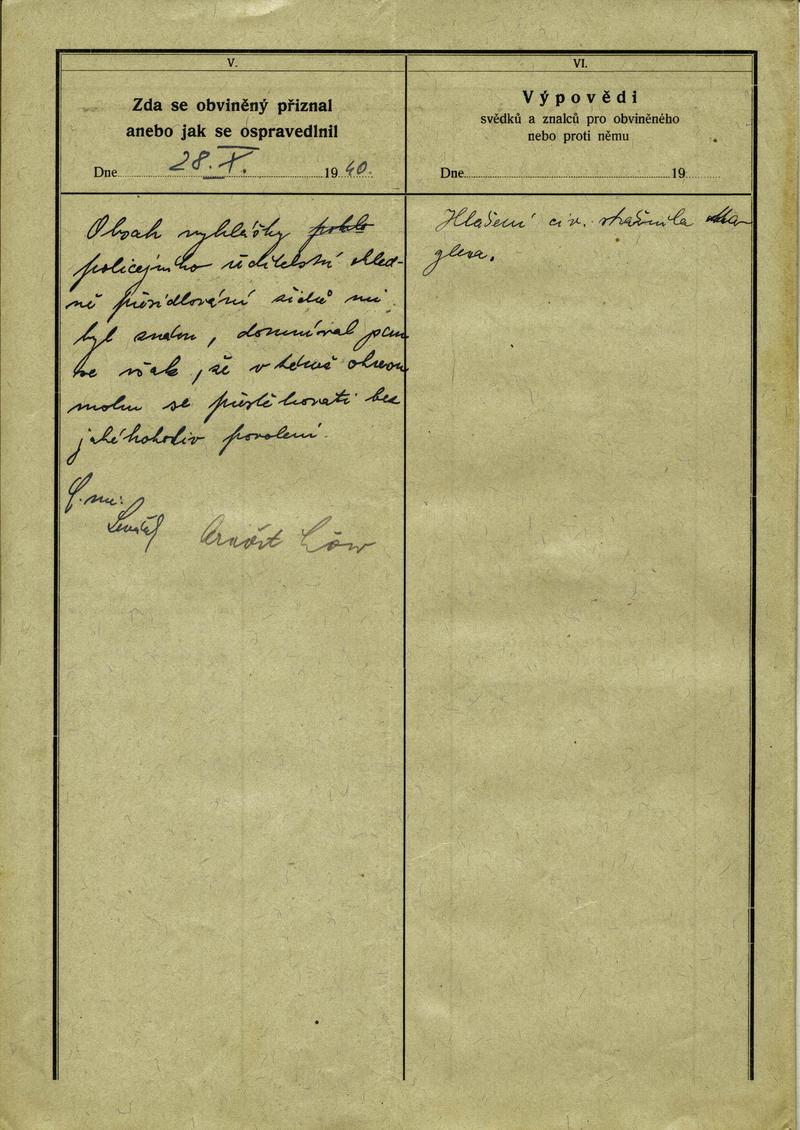 V.
Zda se obviněný přiznal
anebo jak se ospravedlnil
Dne 28. X. 1940.
Obsah vyhlášky
policejního ředitelství ohled-
ně přesídlování židů mi
byl znám, domníval jsem
se však, že v témž okrsku
mohu se přestěhovati bez
jakéhokoliv povolení.
Arnošt Löw
VI.
Výpovědi
svědků a znalců pro obviněného
nebo proti němu
Dne 19
Hlášení civ. strážníka Ma-
glera.